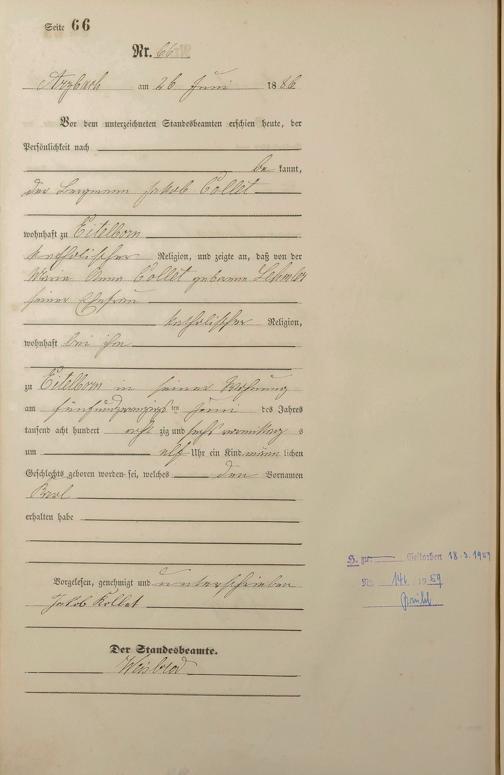 Seite 66
Nr. 66
Arzbach am 26 Juni 1886
Vor dem unterzeichneten Standesbeamten erschien heute, der
Persönlichkeit nach
be kannt,
der Bergmann Jakob Collet
wohnhaft zu Eitelborn
katholischer Religion, und zeigte an, daß von der
Maria Anna Collet geborene
seiner Ehefrau
katholischer Religion,
wohnhaft bei ihm
zu Eitelborn in seiner Wohnung
am fünfundzwanzigsten Juni des Jahres
tausend acht hundert acht zig und sechs vormittags
um elf Uhr ein Kind männlichen
Geschlechts geboren worden sei, welches den Vornamen
erhalten habe
Vorgelesen, genehmigt und unterschrieben
Jakob Kollet
Der Standesbeamte.
Gestorben 18.3.19